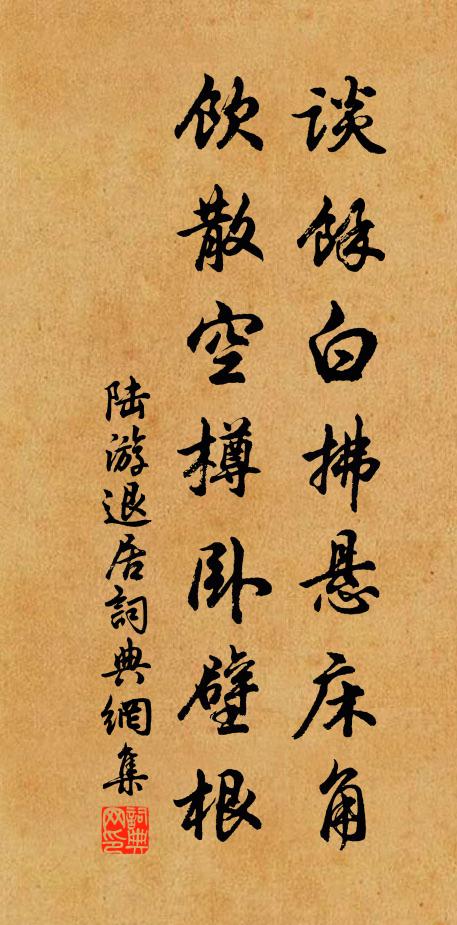 談餘白拂悬床角
飲散空樽卧壁根
陆游退居詞典網集
詞典网印